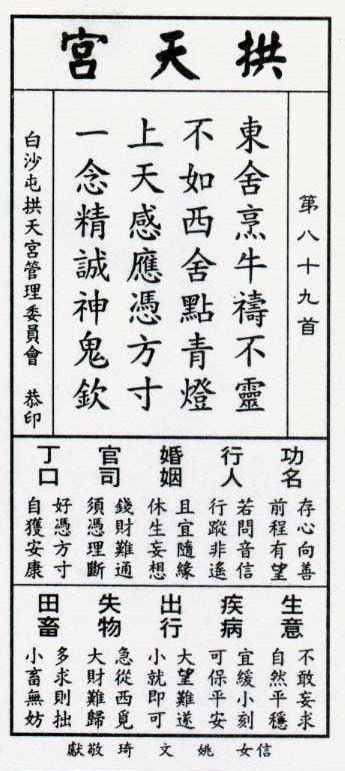 拱天宮
第八十九首
東舍烹牛禱不靈
不如西舍點青燈
上天感應憑方寸
一念精誠神鬼欽
白沙屯拱天宮管理委員會　恭印
功名
存心向善
前程有望
行人
若問音信
行蹤非遙
婚姻
且宜隨緣
休生妄想
官司
錢財難通
須憑理斷
丁口
好憑方寸
自獲安康
生意
不敢妄求
自然平穩
疾病
宜緩小刻
可保平安
出行
大望難遂
小就即可
失物
急從西覓
大財難歸
田畜
多求則拙
小畜無妨
信女　姚　文　琦　敬獻